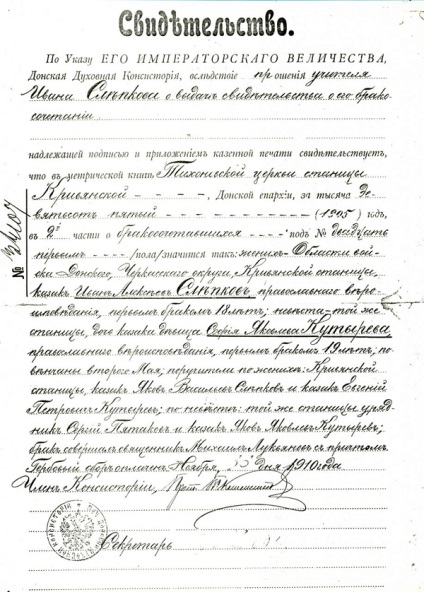 Свидѣтельство.
По Указу ЕГО ИМПЕРАТОРСКАГО ВЕЛИЧЕСТВА,
Донская Духовная Консисторія, вслѣдствіе прошенія учителя
Ивана Слѣпкова о выдачѣ свидѣтельства о его брако-
сочетаніи
надлежащей подписью и приложеніемъ казенной печати свидѣтельствуетъ,
что въ метрической книгѣ Тихоновской церкви станицы
Кривянской - - - - -, Донской епархіи, за тысяча де-
вятьсотъ пятый - - - - - (1905) годъ,
въ 2й части о бракосочетавшихся - - - подъ № двадцать
первымъ - - - - /пола/значится такъ: женихъ - Области Вой-
ска Донского, Черкасскаго округа, Кривянской станицы,
казакъ Иванъ Алексѣевъ Слѣпковъ, православнаго вѣро-
исповѣданія, первымъ бракомъ 18 лѣтъ; невѣста - той же
станицы, дочь казака дѣвица Софія Яковлева Кутырева,
православнаго вѣроисповѣданія, первымъ бракомъ 19 лѣтъ; по-
вѣнчаны второго Мая; поручители по женихѣ: Кривянской
станицы, казакъ Яковъ Васильевъ Слѣпковъ и казакъ Евгеній
Петровичъ Кутыревъ; по невѣстѣ: той же станицы уряд-
никъ Сергій и казакъ Яковъ Яковлевъ Кутыревъ;
бракъ совершалъ священникъ Михаилъ Лукьяновъ съ причтомъ.
Гербовый сборъ оплаченъ. Ноября, дня 1910 года
Членъ Консисторіи, Прот.
Секретарь
№